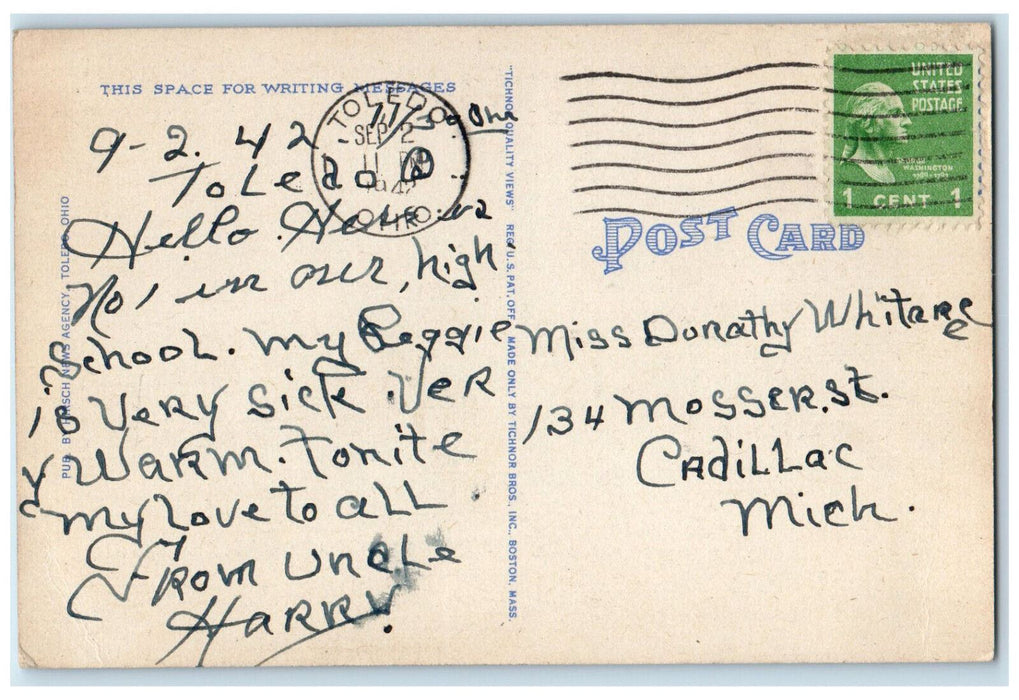 THIS SPACE FOR WRITING MESSAGES
9-2.42
Toledo O
Hello.
No, in our, high
School. My Peggie
is Very Sick. Ver
y Warm. Tonite
My Love to all
From Uncle
Harry.
TOLEDO
SEP 2
11 PM
1942
OHIO
PUB. BY BUESCH NEWS AGENCY, TOLEDO, OHIO
"TICHNOR QUALITY VIEWS" REG. U.S. PAT. OFF. MADE ONLY BY TICHNOR BROS., INC., BOSTON, MASS.
UNITED
STATES
POSTAGE
WASHINGTON
1 CENT 1
POST CARD
Miss Dorathy Whitare
134 Mosser. St.
Cadillac
Mich.